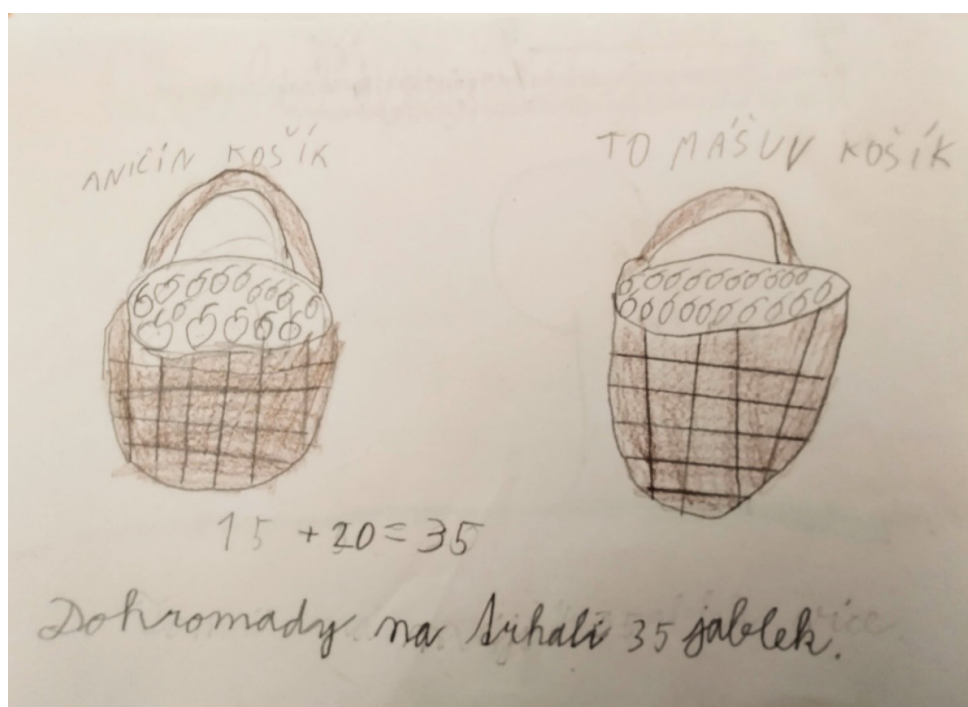 ANIČÍN KOŠÍK
TOMÁŠUV KOŠÍK
15 + 20 = 35
Dohromady na trhali 35 jablek.